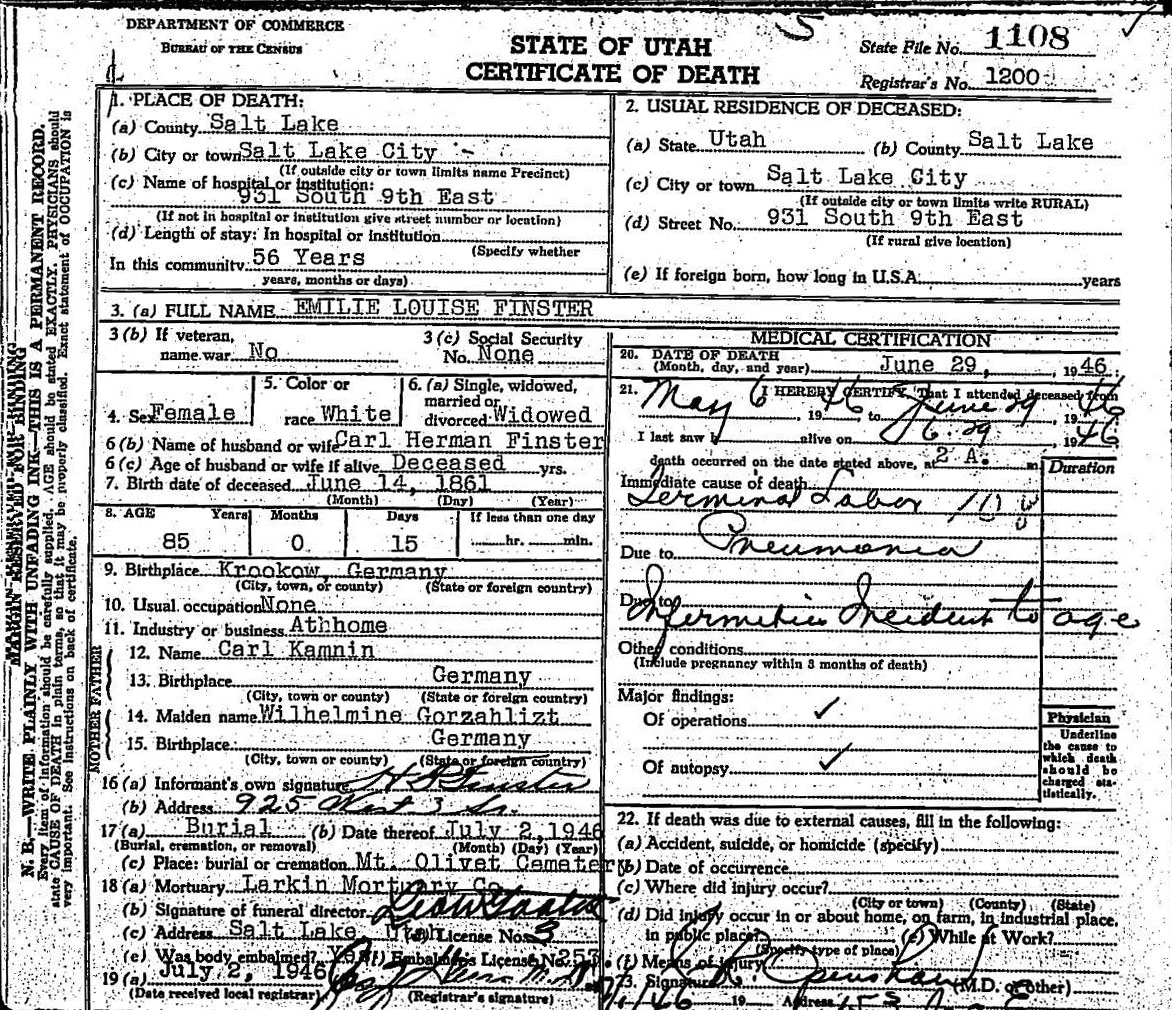 DEPARTMENT OF COMMERCE
BUREAU OF THE CENSUS
STATE OF UTAH
CERTIFICATE OF DEATH
State File No. 1108
Registrar's No. 1200
MARGIN RESERVED FOR BINDING
N. B.—WRITE PLAINLY WITH UNFADING INK—THIS IS A PERMANENT RECORD.
Every item of information should be carefully supplied. AGE should be stated EXACTLY. PHYSICIANS should
state CAUSE OF DEATH in plain terms, so that it may be properly classified. Exact statement of OCCUPATION is
very important. See instructions on back of certificate.
1. PLACE OF DEATH:
(a) County Salt Lake
(b) City or town Salt Lake City
(If outside city or town limits name Precinct)
(c) Name of hospital or institution:
931 South 9th East
(If not in hospital or institution give street number or location)
(d) Length of stay: In hospital or institution
(Specify whether
In this community 56 Years
years, months or days)
2. USUAL RESIDENCE OF DECEASED:
(a) State Utah (b) County Salt Lake
(c) City or town Salt Lake City
(If outside city or town limits write RURAL)
(d) Street No. 931 South 9th East
(If rural give location)
(e) If foreign born, how long in U.S.A. years
3. (a) FULL NAME EMILIE LOUISE FINSTER
3 (b) If veteran,
name war No
3 (c) Social Security
No. None
4. Sex Female
5. Color or
race White
6. (a) Single, widowed,
married or
divorced Widowed
6 (b) Name of husband or wife Carl Herman Finster
6 (c) Age of husband or wife if alive Deceased yrs.
7. Birth date of deceased June 14, 1861
(Month) (Day) (Year)
8. AGE Years Months Days If less than one day
85 0 15 hr. min.
9. Birthplace Krookow, Germany
(City, town, or county) (State or foreign country)
10. Usual occupation None
11. Industry or business Athhome
FATHER
12. Name Carl Kamnin
13. Birthplace Germany
(City, town or county) (State or foreign country)
MOTHER
14. Maiden name Wilhelmine Gorzahlizt
15. Birthplace Germany
(City, town or county) (State or foreign country)
16 (a) Informant's own signature Finster
(b) Address 925 West 3 So.
17 (a) Burial (b) Date thereof July 2, 1946
(Burial, cremation, or removal) (Month) (Day) (Year)
(c) Place: burial or cremation Mt. Olivet Cematery
18 (a) Mortuary Larkin Mortuary Co
(b) Signature of funeral director
(c) Address Salt Lake, Utah (d) License No. 3
(e) Was body embalmed? Yes (f) Embalmer's License No. 253
19 (a) July 2, 1946
(Date received local registrar) (Registrar's signature)
MEDICAL CERTIFICATION
20. DATE OF DEATH
(Month, day, and year) June 29, 1946
21. I HEREBY CERTIFY, That I attended deceased from
May 6 1946 to June 29, 1946
I last saw h alive on 6 29, 1946
death occurred on the date stated above, at 2 A. m
Duration
Immediate cause of death
Terminal Lobar
Due to Pneumonia
Due to
Infermities Incident to age
Other conditions
(Include pregnancy within 3 months of death)
Major findings:
Of operations ✓
Of autopsy ✓
Physician
Underline
the cause to
which death
should be
charged sta-
tistically.
22. If death was due to external causes, fill in the following:
(a) Accident, suicide, or homicide (specify)
(b) Date of occurrence
(c) Where did injury occur?
(City or town) (County) (State)
(d) Did injury occur in or about home, on farm, in industrial place,
in public place? (e) While at Work?
(Specify type of place)
(f) Means of injury
23. Signature (M.D. or other)
46 19 Address